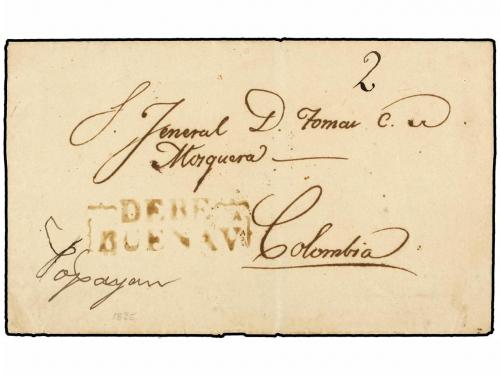 2
S. Jeneral D. Tomas C. de
Mosquera
DEBE
BUENAV
Colombia
Popayan
1825